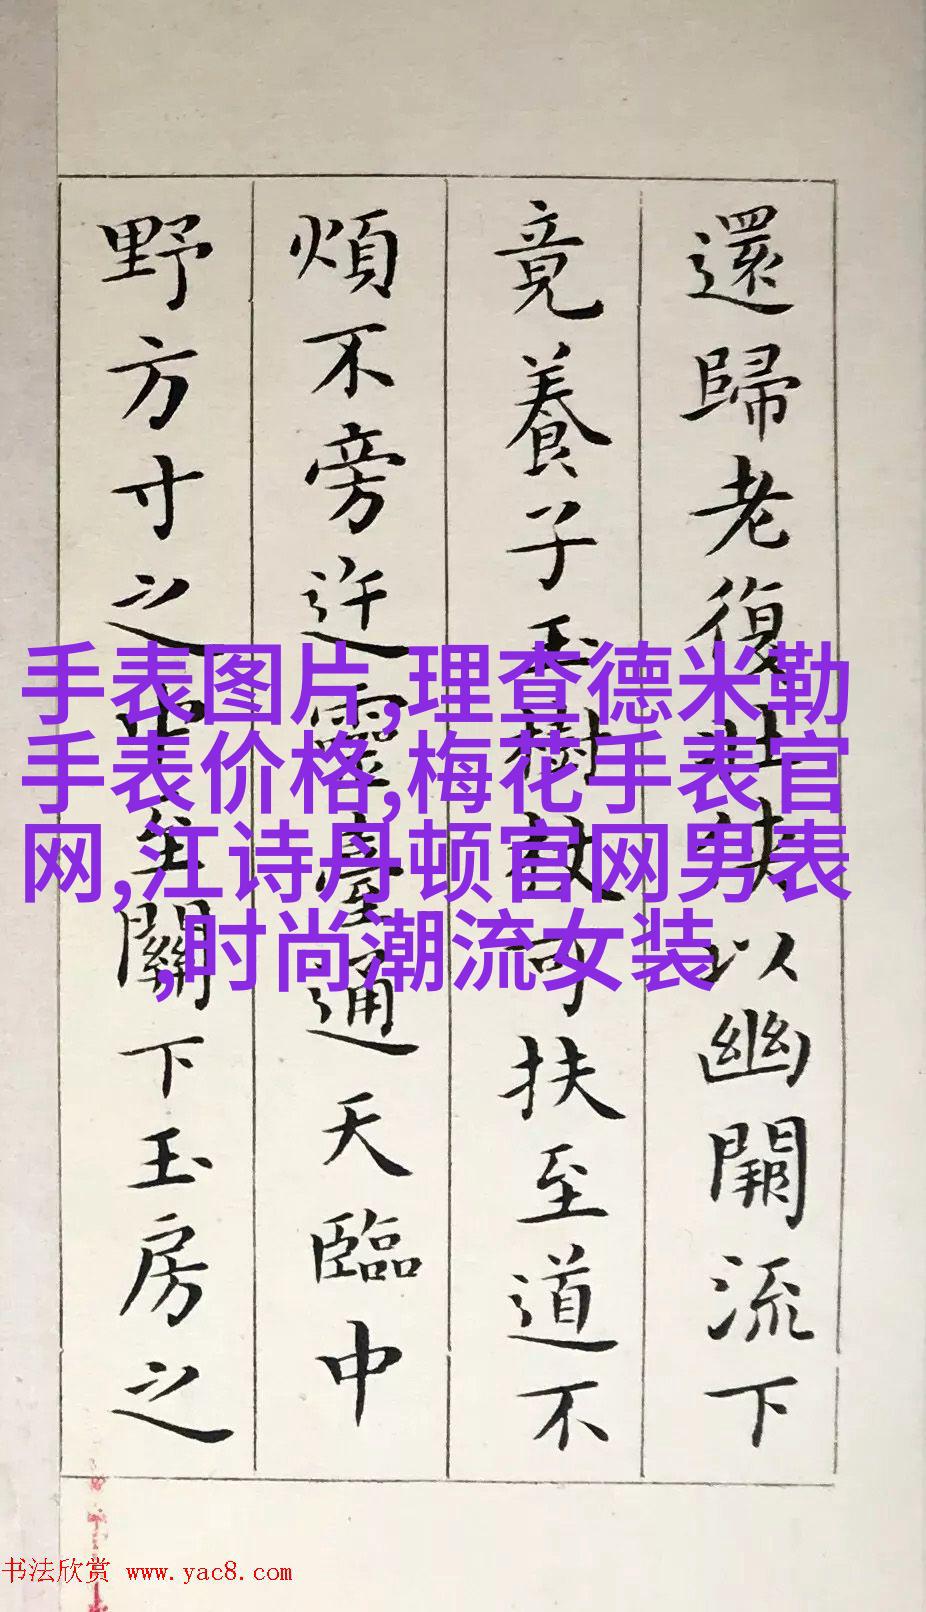 還歸老復壯俠以幽闕流下
竟養子玉樹杖可扶至道不
煩不旁迕靈臺通天臨中
野方寸之中至關下玉房之
手表图片,理查德米勒
手表价格,梅花手表官
网,江诗丹顿官网男表
,时尚潮流女装
书法欣赏 www.yac8.com